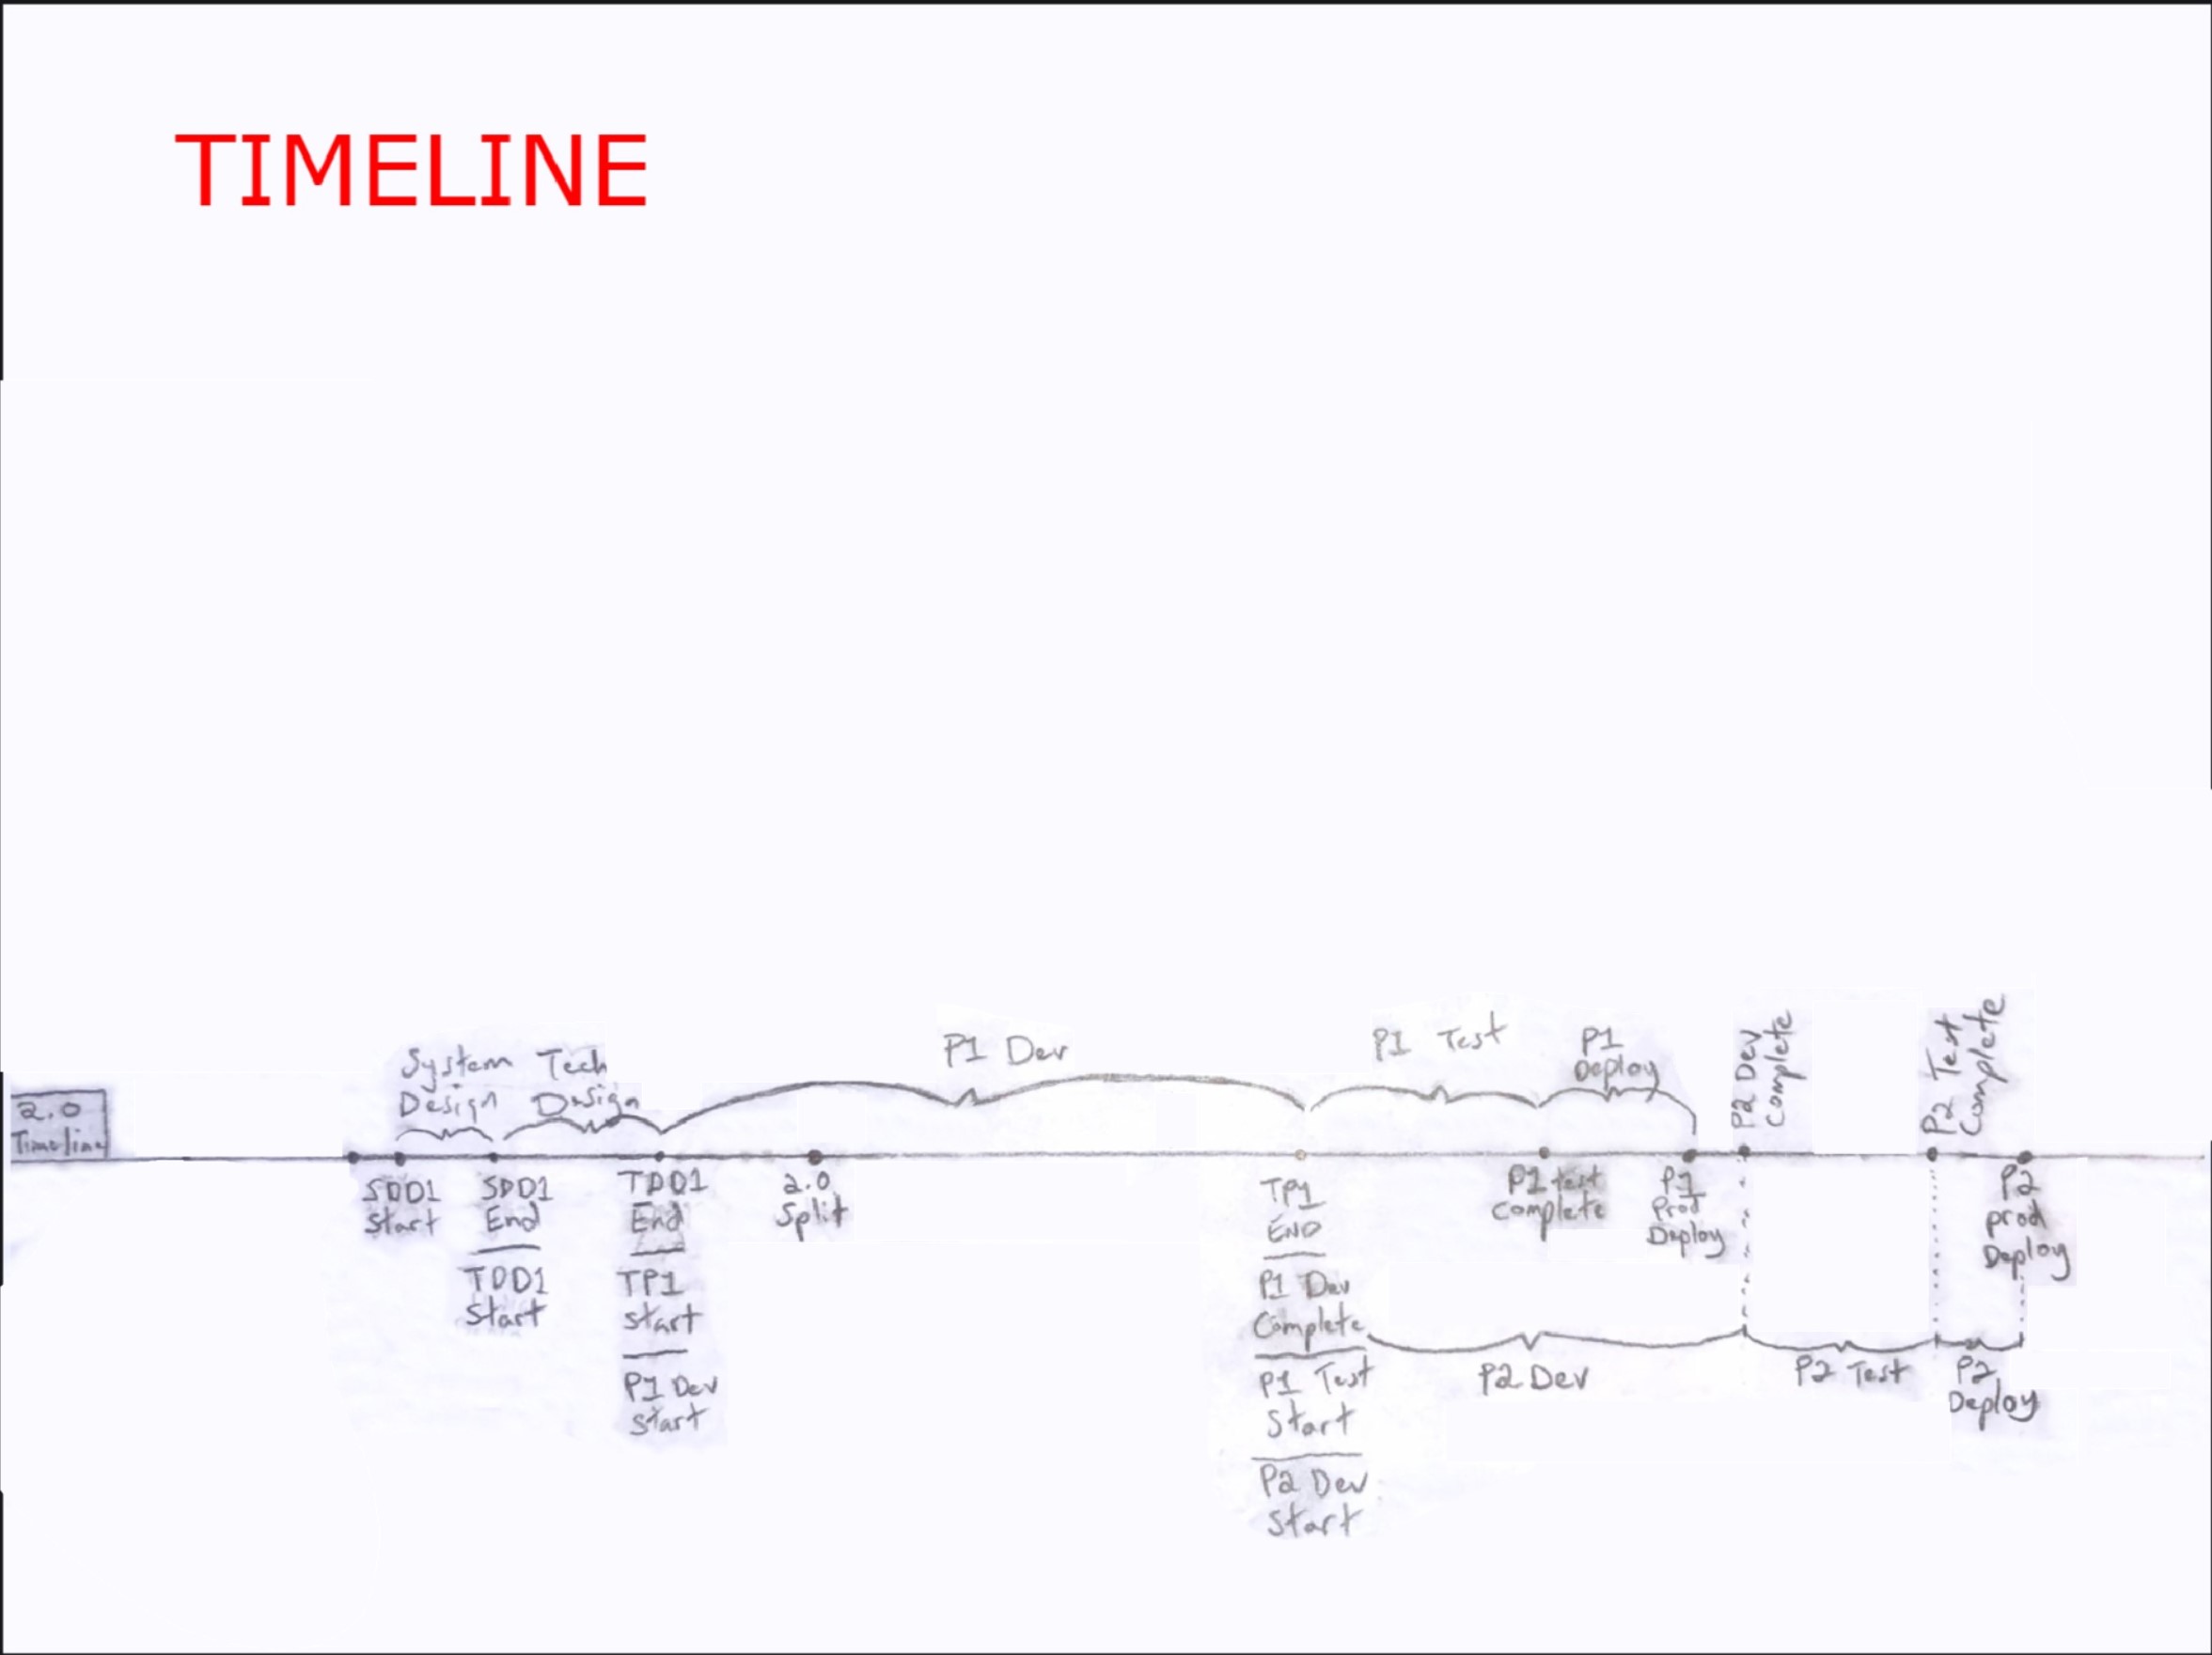 TIMELINE
System
Design
Tech
Design
P1 Dev
P1 Test
P1
Deploy
P2 Dev
Complete
P2 Test
Complete
2.0
Timeline
SDD1
Start
SDD1
End
TDD1
Start
TDD1
End
TP1
Start
P1 Dev
Start
2.0
Split
TP1
END
P1 Dev
Complete
P1 Test
Start
P2 Dev
Start
P1 test
Complete
P1
Prod
Deploy
P2
prod
Deploy
P2 Dev
P2 Test
P2
Deploy